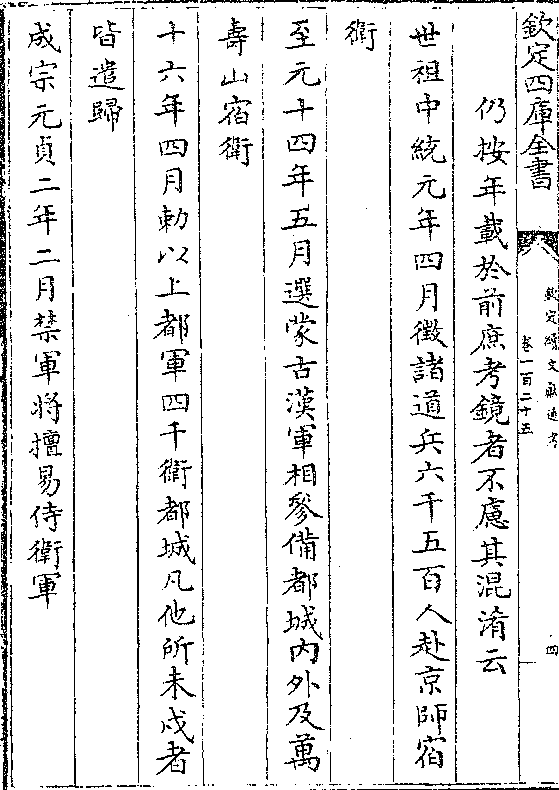 欽定四庫全書
欽定續文獻通考
卷一百二十五
四
仍按年載於前庶考鏡者不慮其混淆云
世祖中統元年四月徵諸道兵六千五百人赴京師宿
衛
至元十四年五月選蒙古漢軍相參備都城内外及萬
壽山宿衛
十六年四月勅以上都軍四千衛都城凡他所來戍者
皆遣歸
成宗元貞二年二月禁軍將擅易侍衛軍